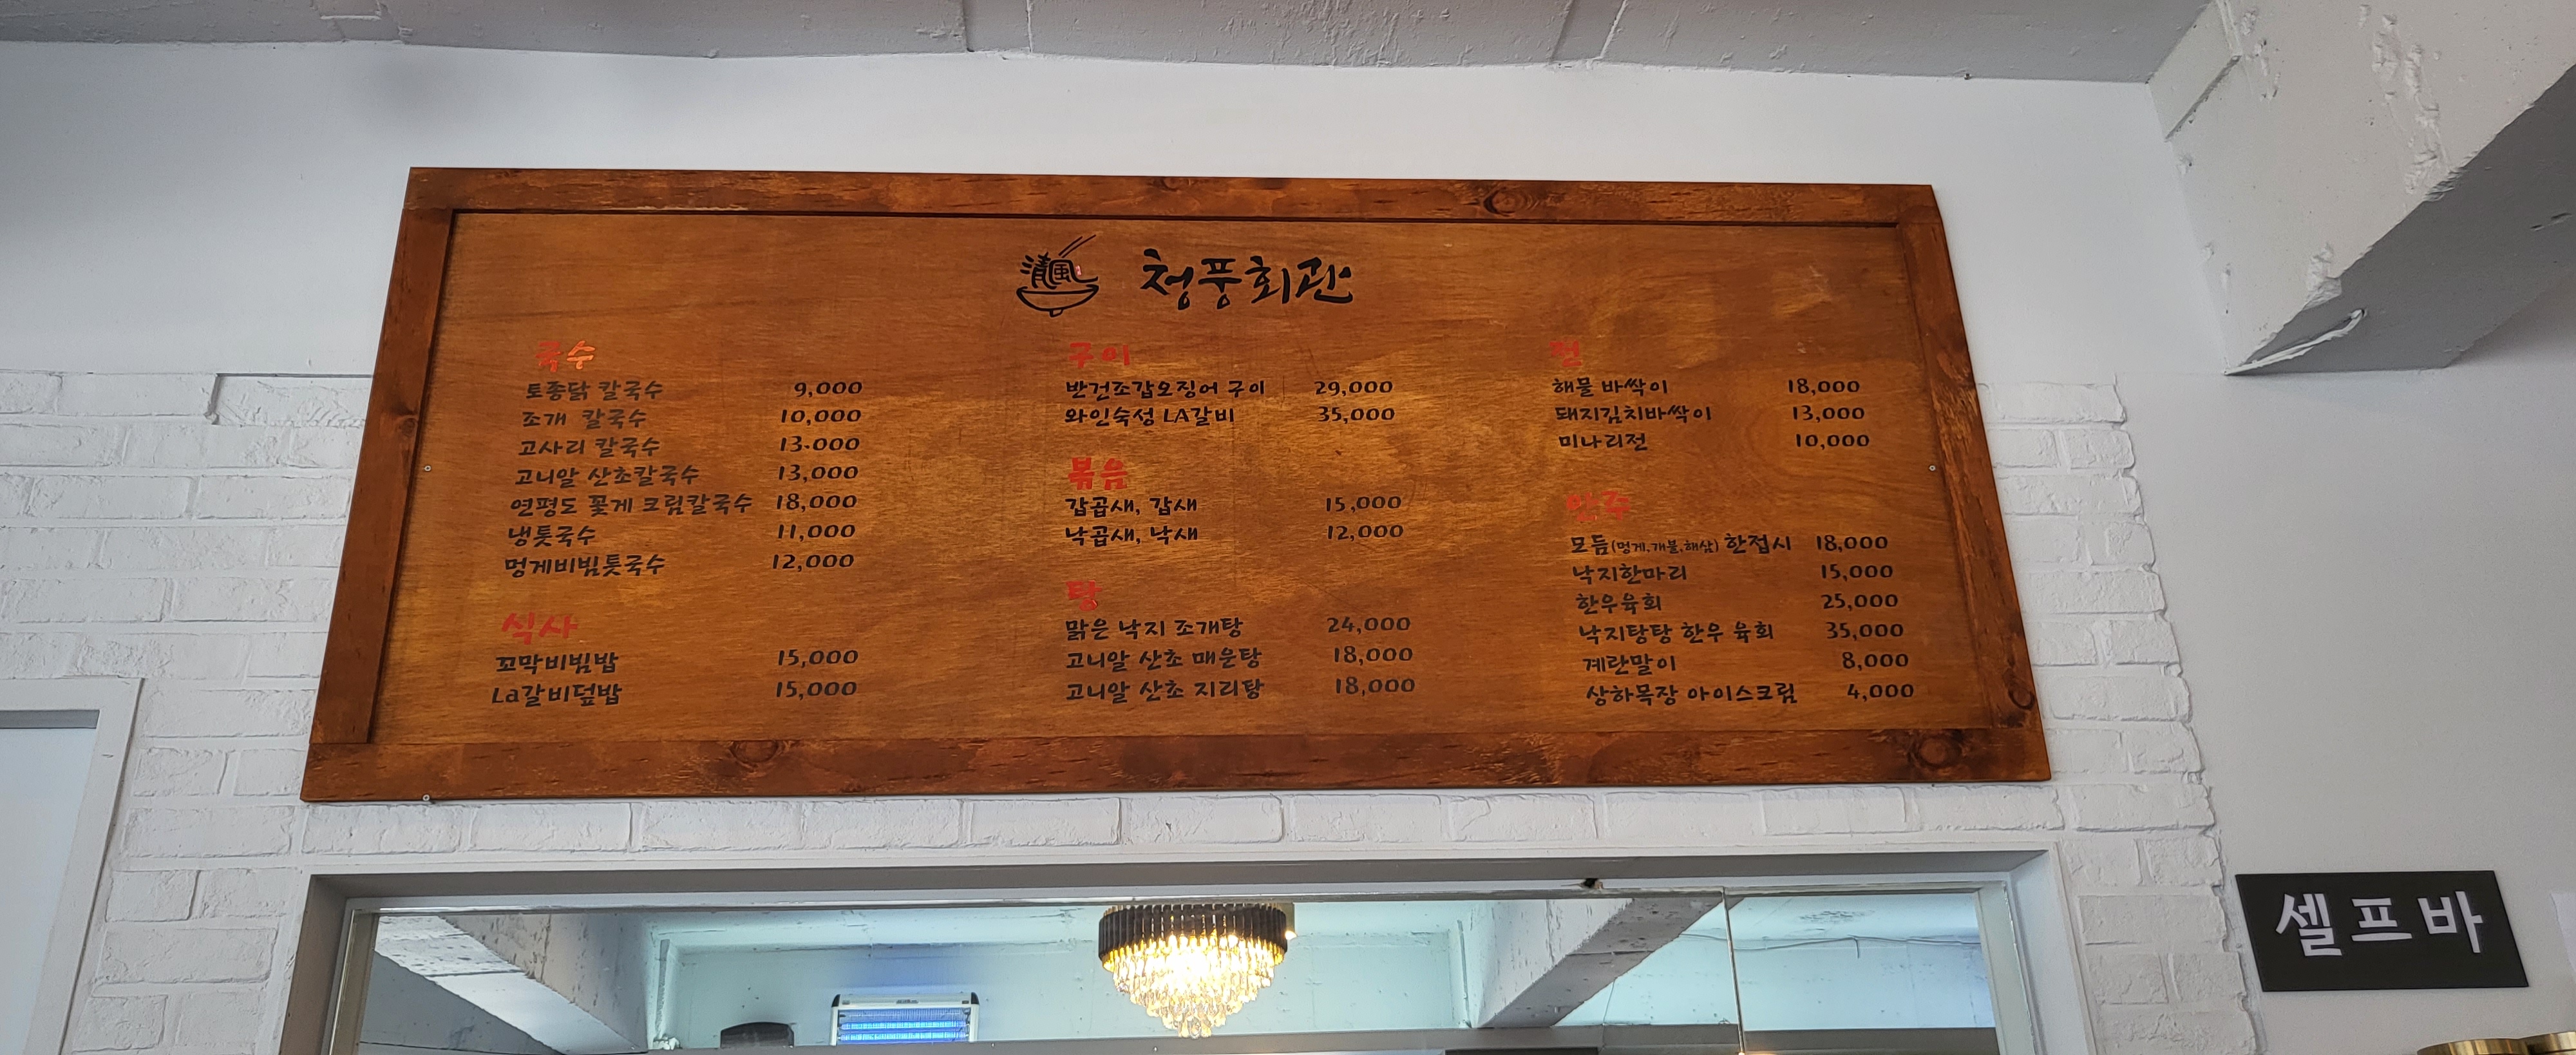 淸風 청풍회관
국수
토종닭 칼국수 9,000
조개 칼국수 10,000
고사리 칼국수 13.000
고니알 산초칼국수 13,000
연평도 꽃게 크림칼국수 18,000
냉톳국수 11,000
멍게비빔톳국수 12,000
식사
꼬막비빔밥 15,000
La갈비덮밥 15,000
구이
반건조갑오징어 구이 29,000
와인숙성 LA갈비 35,000
볶음
갑곱새, 갑새 15,000
낙곱새, 낙새 12,000
탕
맑은 낙지 조개탕 24,000
고니알 산초 매운탕 18,000
고니알 산초 지리탕 18,000
전
해물 바싹이 18,000
돼지김치바싹이 13,000
미나리전 10,000
안주
모듬(멍게,개불,해삼) 한접시 18,000
낙지한마리 15,000
한우육회 25,000
낙지탕탕 한우 육회 35,000
계란말이 8,000
상하목장 아이스크림 4,000
셀프바